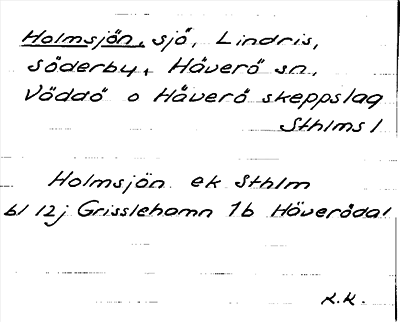 Holmsjön, sjö, Lindris,
Söderby, Häverö sn,
Väddö o Häverö skeppslag
Sthlms l
Holmsjön ek Sthlm
bl 12j Grisslehamn 1b Häverödal
K.K.